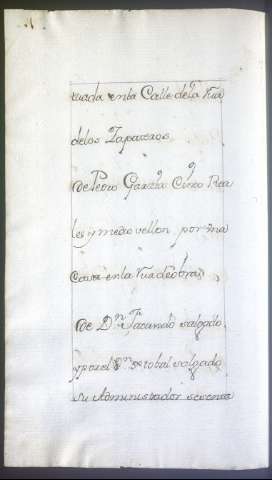 tuada enla Calle dela Rua
delos Zapateros
de Pedro Garcia Cinco Rea
les y medio vellon por una
Casa en la Rua
de Dn. Facundo salgado,
y por el Dn. Xptobal salgado
su Administrador sesenta